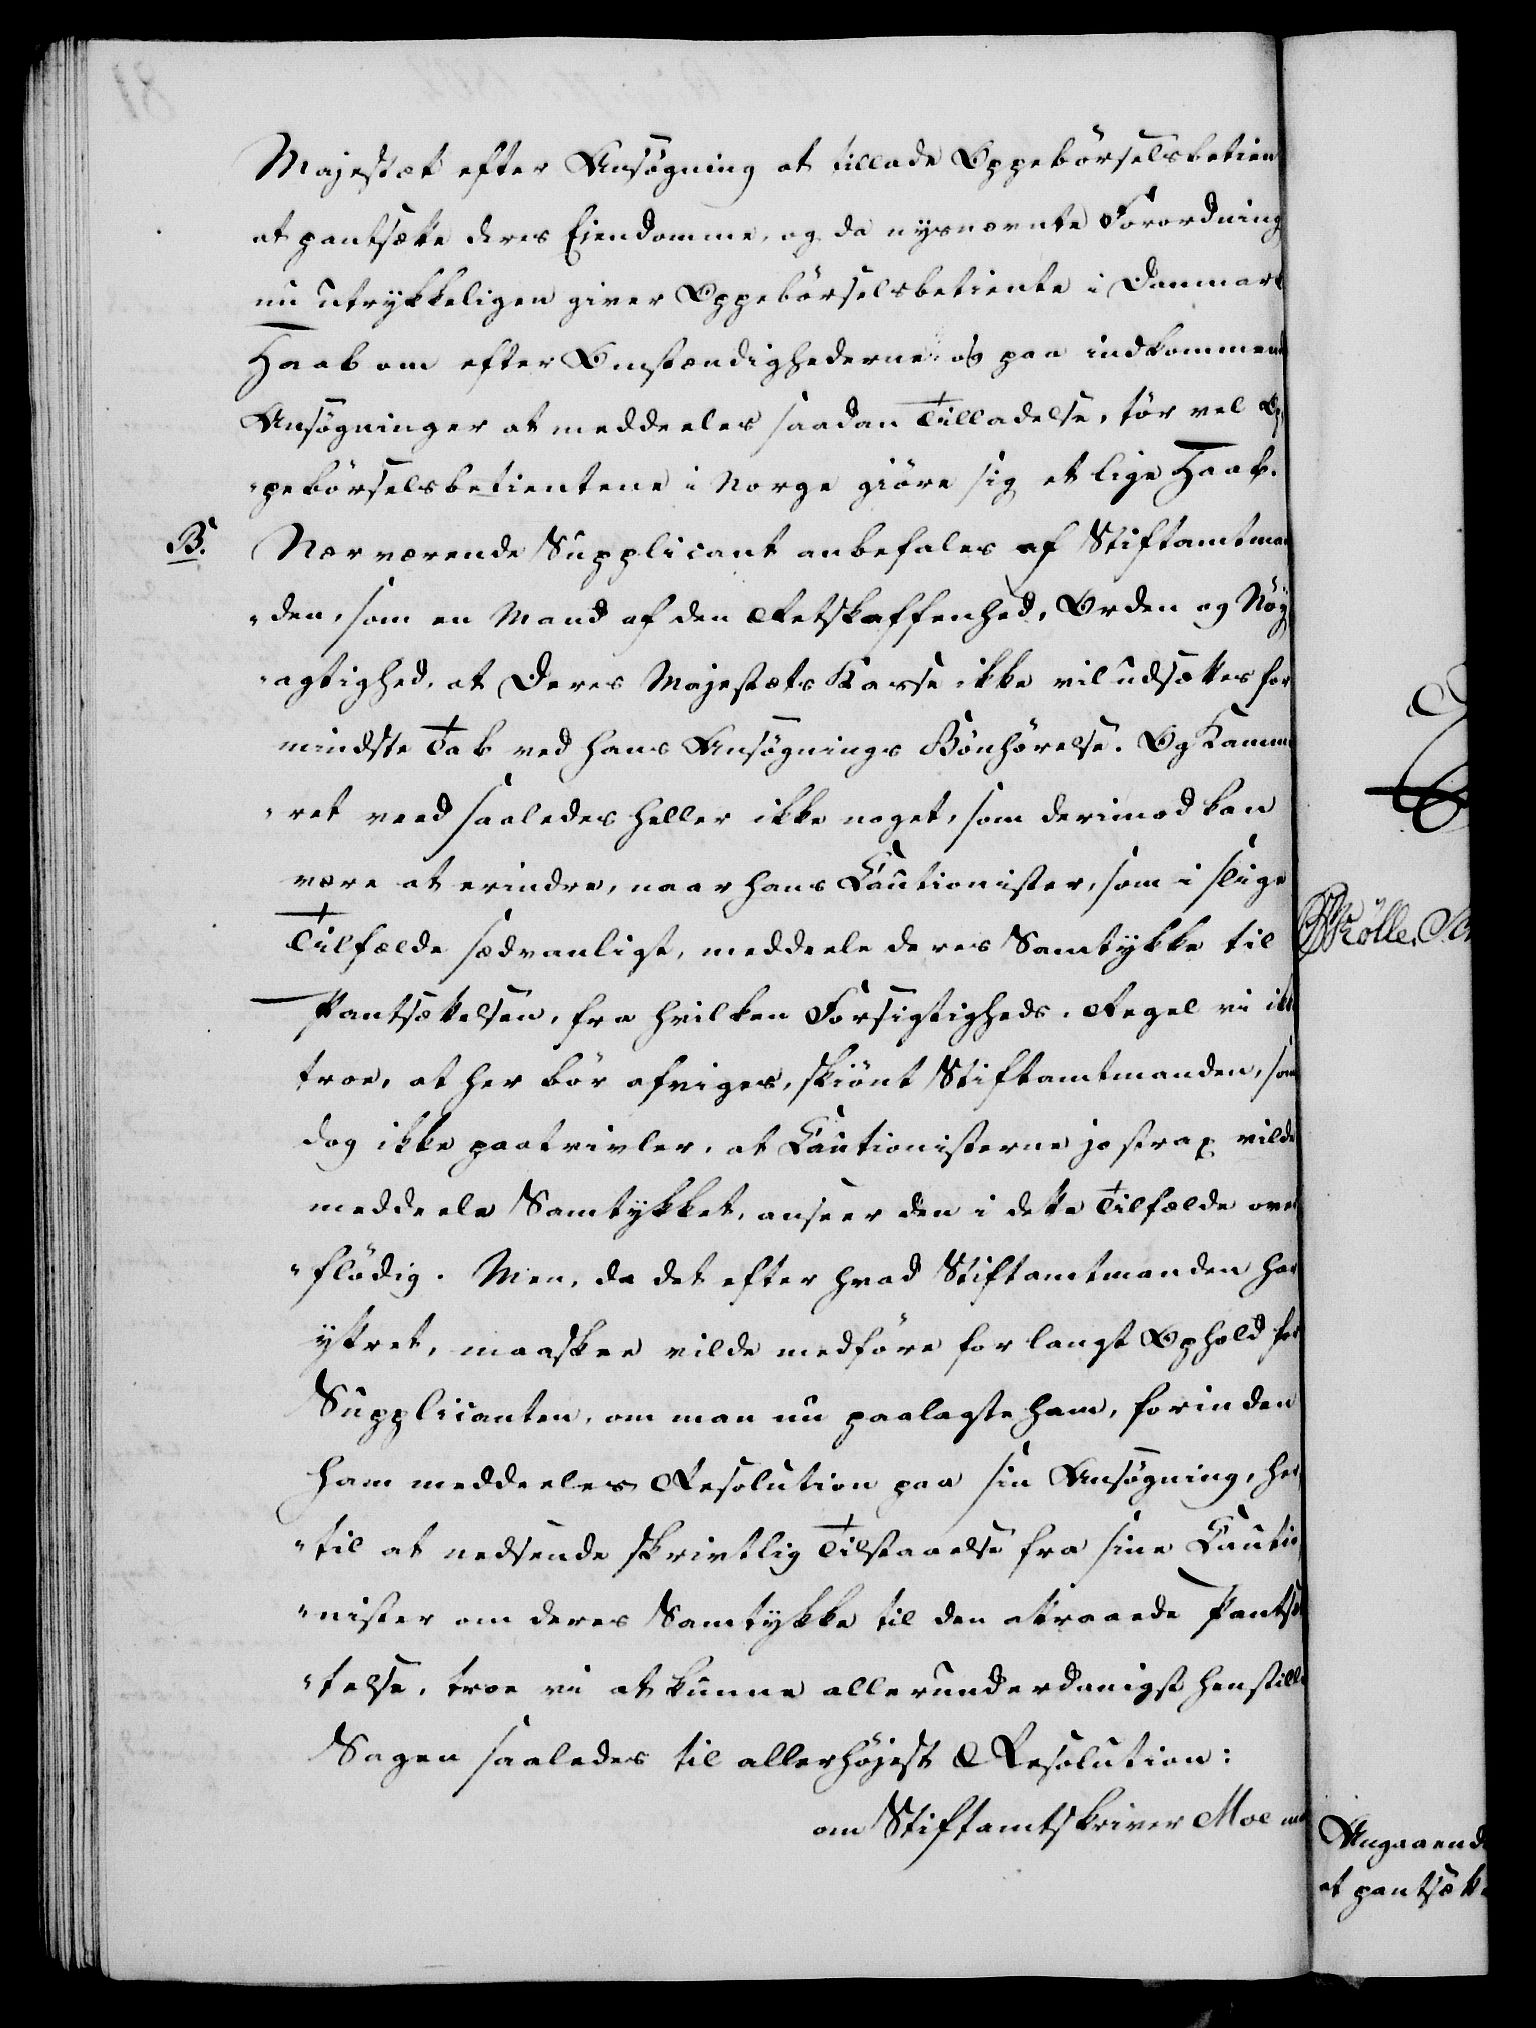 Majestæt efter Ansøgning at tillade Oppebörselsbetien
at pantsætte deres Eiendomme, og da nysnævnte Forordning
nu udtrykkeligen giver Oppebörselsbetiente i Danmark
Haab om efter Omstændighederne og paa indkommen
Ansøgninger at meddeeles saadan Tilladelse, tör vel Op
"pebörselsbetientene i Norge giöre sig et lige Haab.
B. Nærværende Supplicant anbefales af Stiftamtman
"den, som en Mand af den Retskaffenhed, Orden og Nöy
"agtighed, at Deres Majestæts Kasse ikke vil udsættes for
mindste Tab ved hans Ansøgnings Bönhörelse. Og Kamme
"ret veed saaledes heller ikke noget, som derimod kan
være at erindre, naar hans Cautionister, som i slige
Tilfælde sædvanligt, meddeele deres Samtykke til
Pantsættelsen, fra hvilken Forsigtigheds-Regel vi ikk
troe, at her bör afviges, skiönt Stiftamtmanden, som
dog ikke paatvivler, at Cautionisterne jo strax vilde
meddeele Samtykket, anseer den i dette Tilfælde over
"flödig. Men, da det efter hvad Stiftamtmanden har
yttret, maaskee vilde medföre for langt Ophold for
Supplicanten, om man nu paalagte ham, forinden
ham meddeeles Resolution paa sin Ansøgning, her
"til at nedsende skrivtlig Tilstaaelse fra sine Cautio
"nister om deres Samtykke til den attraaede Pantsæt
"telse, troe vi at kunne allerunderdanigst henstille
Sagen saaledes til allerhöjest Resolution:
om Stiftamtskriver Moe maa
Rölle.
Angaaende
at pantsætte